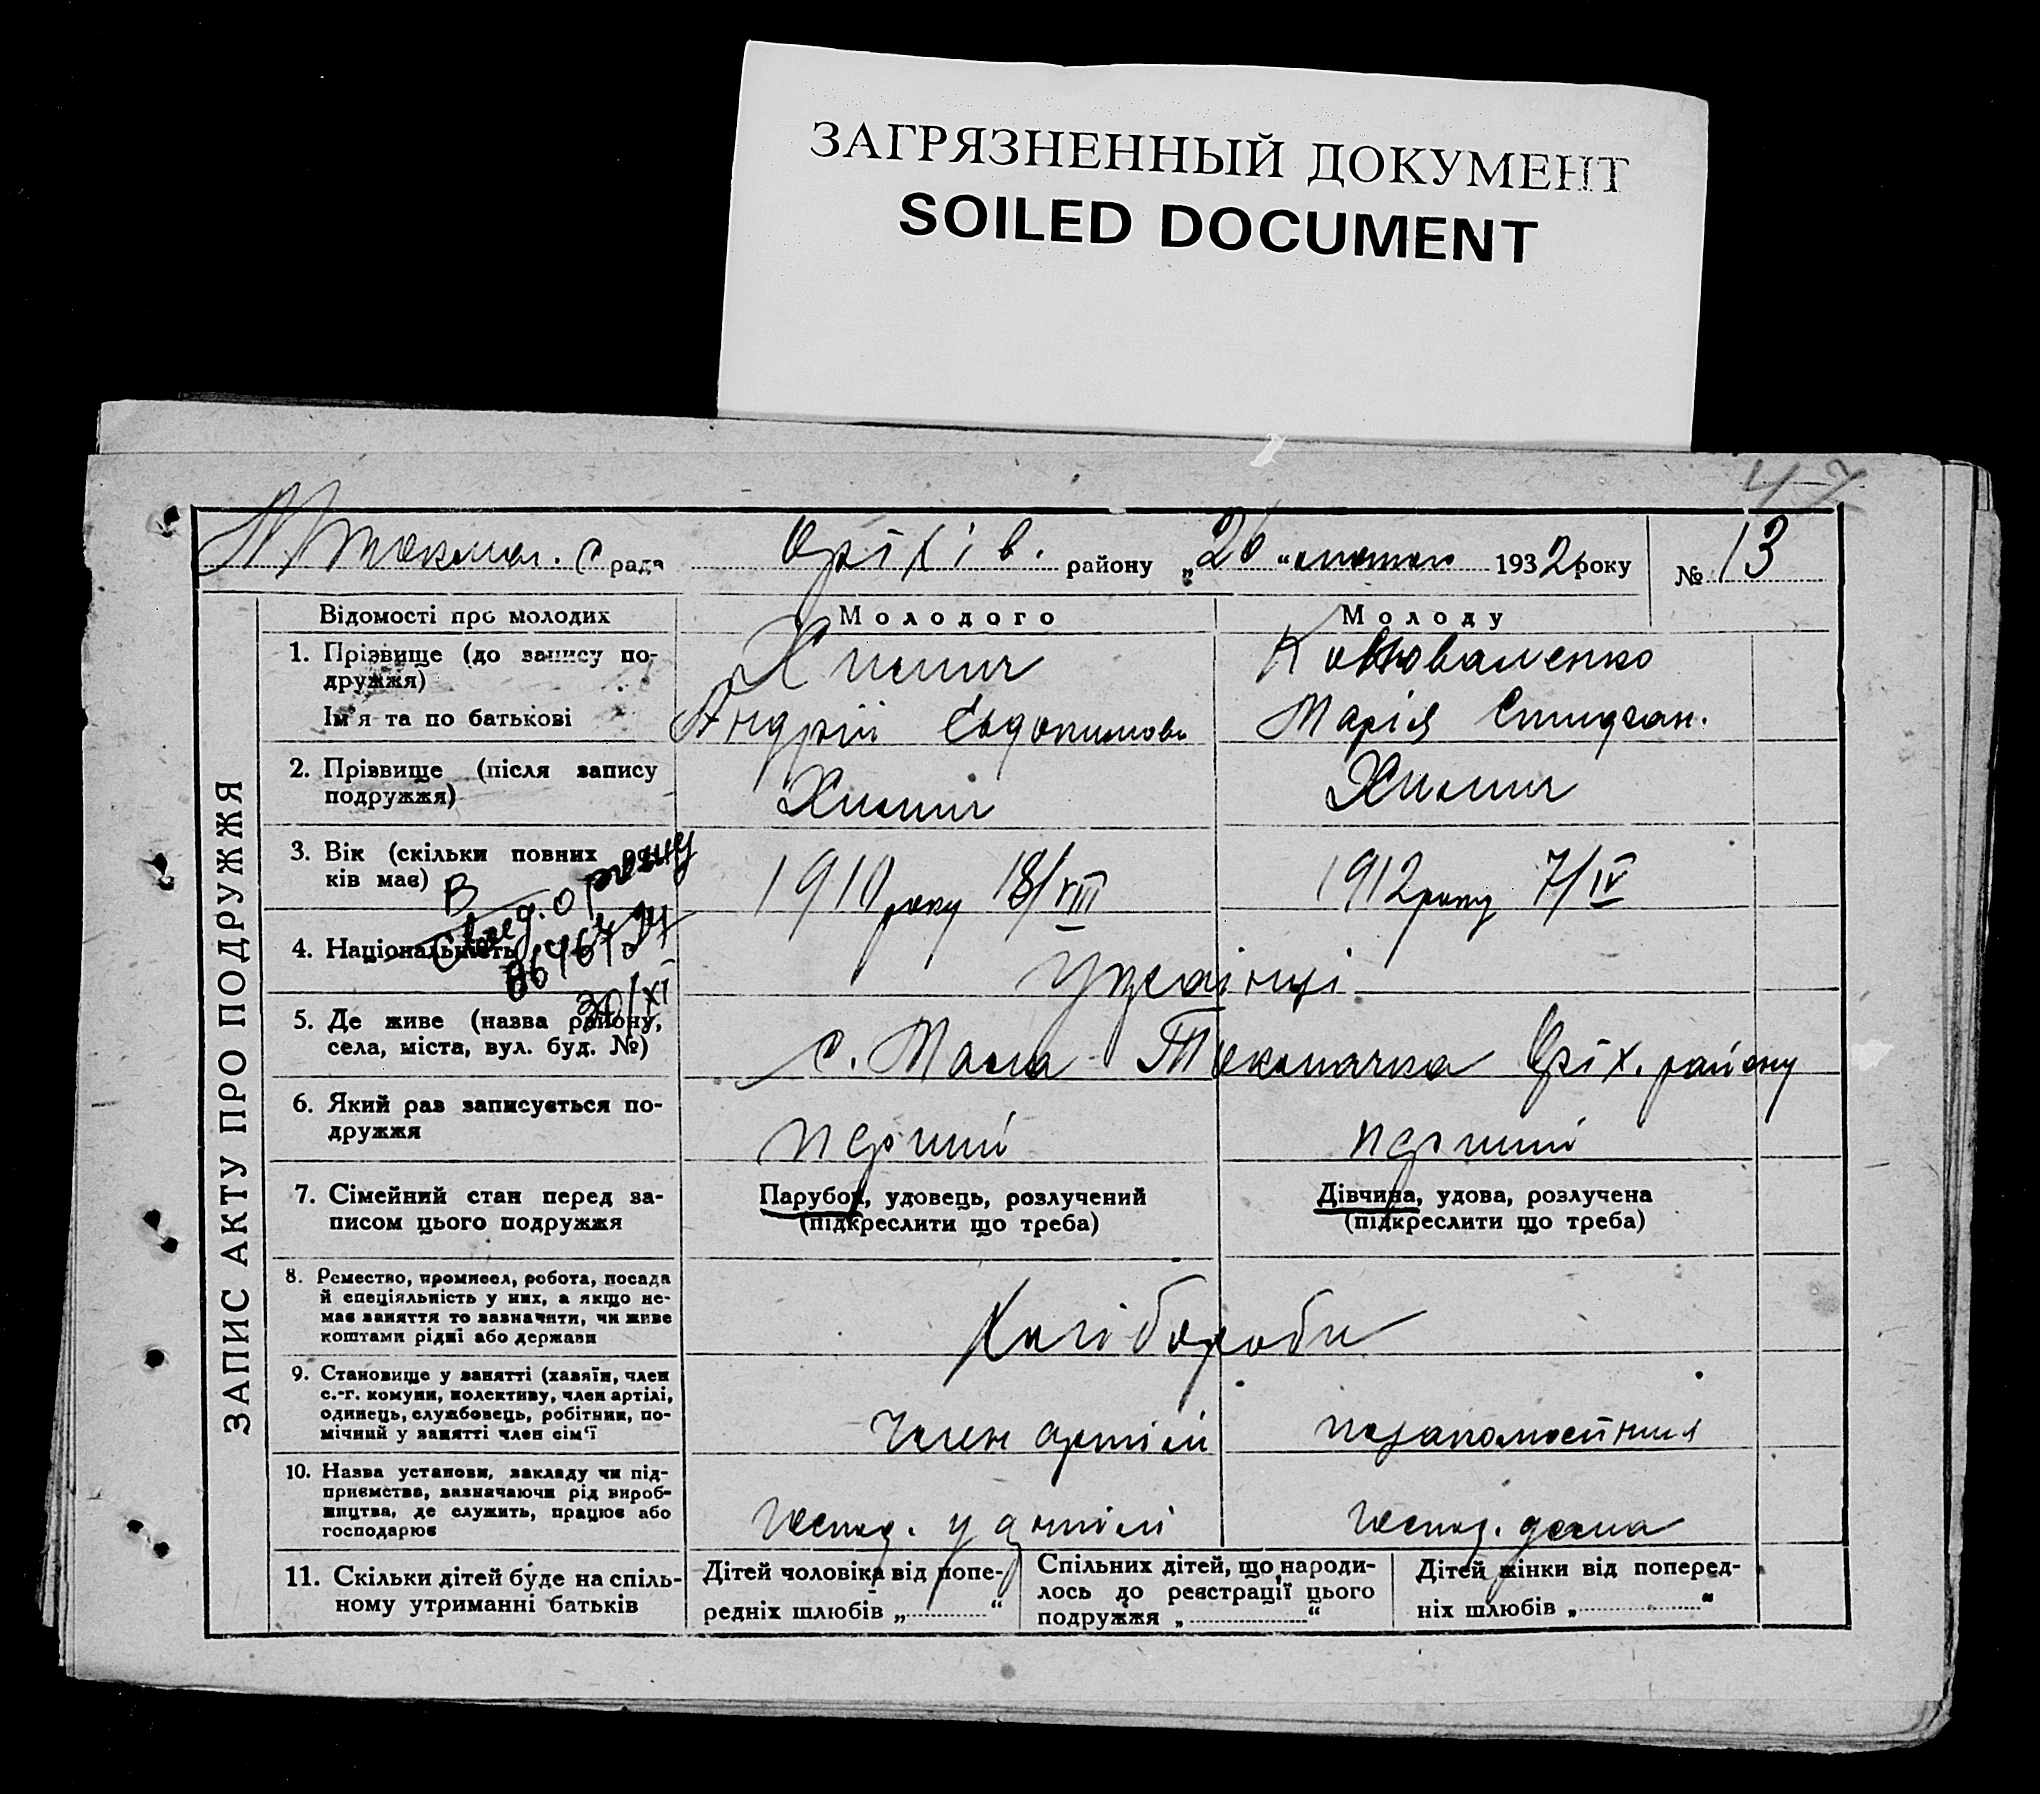 ЗАГРЯЗНЕННЫЙ ДОКУМЕНТ
SOILED DOCUMENT
47
М. Токмач. с рада Оріхів. району „26“ лютого 1932 року № 13
ЗАПИС АКТУ ПРО ПОДРУЖЖЯ
Відомості про молодих Молодого Молоду
1. Прізвище (до запису по-
дружжя)
Химич Коноваленко
Ім'я та по батькові Андрій Євдокимов Марія Спиридон.
2. Прізвище (після запису
подружжя)
Химич Химич
3. Вік (скільки повних ро-
ків має)
1910 року 18/VIII 1912 року 7/IV
В
30/XI
4. Національність Українці
5. Де живе (назва району,
села, міста, вул. буд. №)
с. Мала Токмачка Оріх. району
6. Який раз записується по-
дружжя
перший перший
7. Сімейний стан перед за-
писом цього подружжя
Парубок, удовець, розлучений
(підкреслити що треба)
Дівчина, удова, розлучена
(підкреслити що треба)
8. Ремество, промисел, робота, посада
й спеціяльність у них, а якщо не-
має заняття то зазначити, чи живе
коштами рідні або держави
Хлібороби
9. Становище у занятті (хазяїн, член
с.-г. комуни, колективу, член артілі,
одинець, службовець, робітник, по-
мічний у занятті член сім'ї
член артілі
10. Назва установи, закладу чи під-
приємства, зазначаючи рід вироб-
ництва, де служить, працює або
господарює
господ. у артілі господ. дома
11. Скільки дітей буде на спіль-
ному утриманні батьків
Дітей чоловіка від попе-
редніх шлюбів „ “
Спільних дітей, що народи-
лось до реєстрації цього
подружжя „ “
Дітей жінки від поперед-
ніх шлюбів „ “